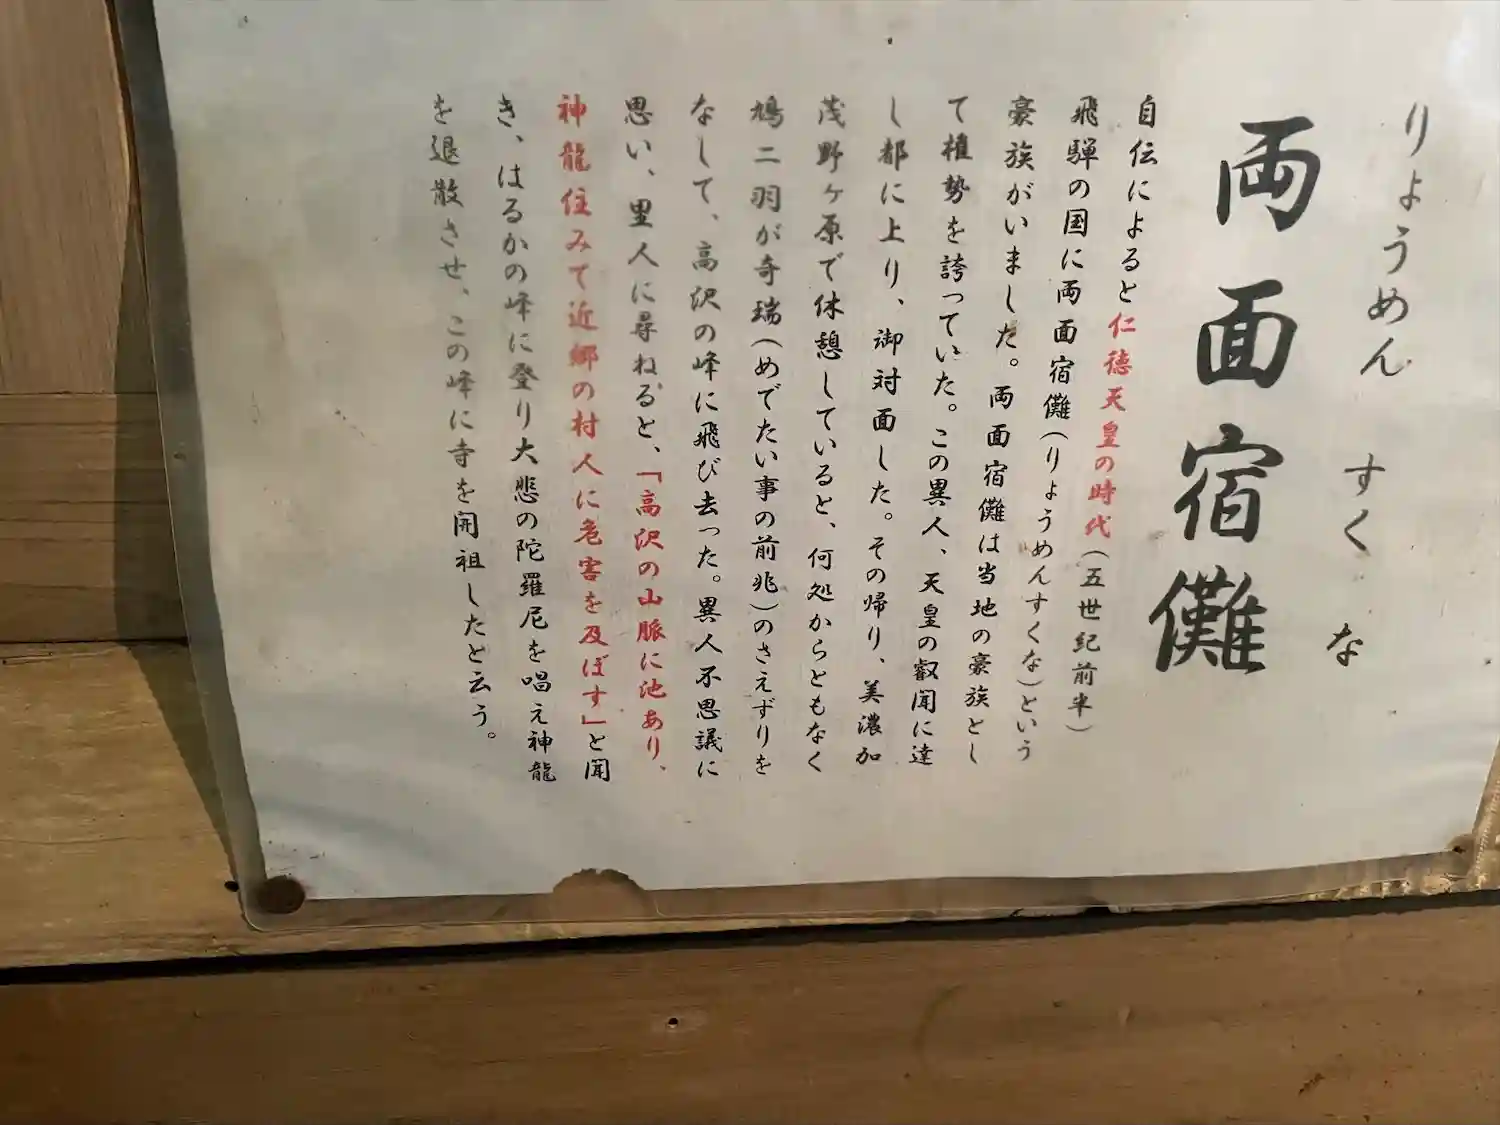 りょうめん すくな
両面宿儺
自伝によると仁徳天皇の時代(五世紀前半)
飛騨の国に両面宿儺(りょうめんすくな)という
豪族がいました。両面宿儺は当地の豪族とし
て権勢を誇っていた。この異人、天皇の叡聞に達
し都に上り、御対面した。その帰り、美濃加
茂野ヶ原で休憩していると、何処からともなく
鳩二羽が奇瑞(めでたい事の前兆)のさえずりを
なして、高沢の峰に飛び去った。異人不思議に
思い、里人に尋ねると、「高沢の山脈に池あり、
神龍住みて近郷の村人に危害を及ぼす」と聞
き、はるかの峰に登り大悲の陀羅尼を唱え神龍
を退散させ、この峰に寺を開祖したと云う。